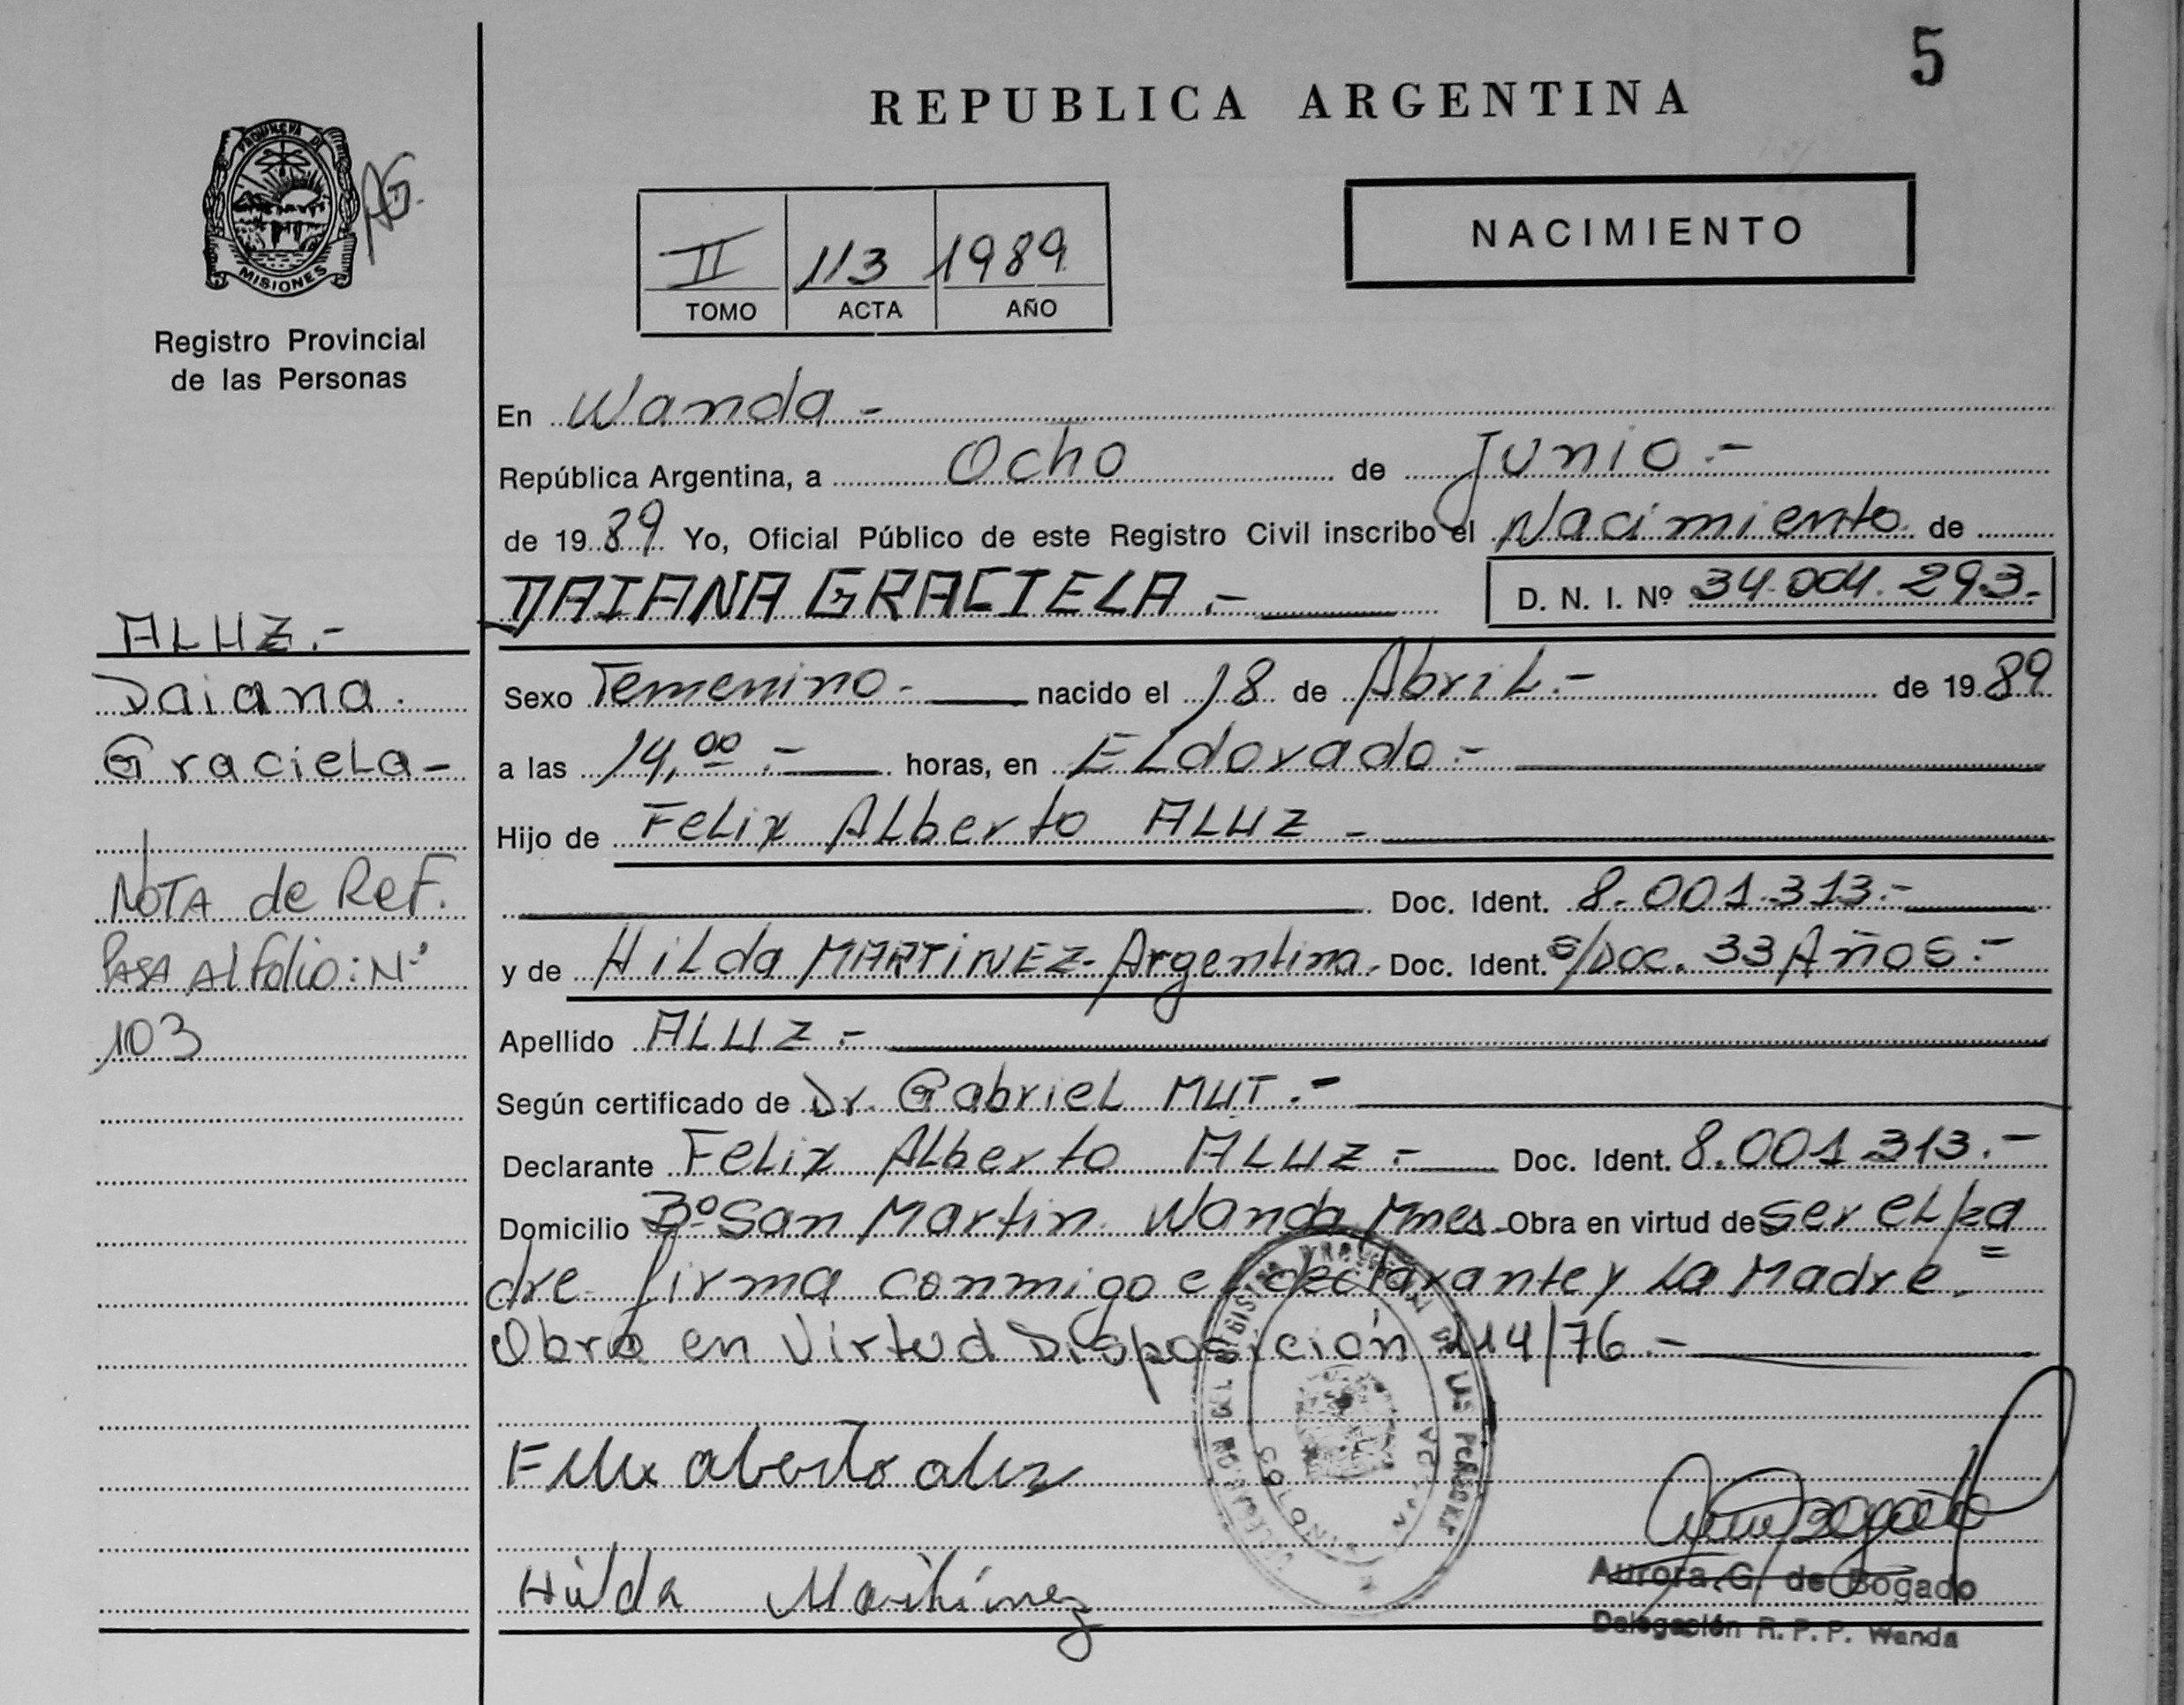 5
REPUBLICA ARGENTINA
PROVINCIA DE
MISIONES
AG.
Registro Provincial
de las Personas
II 113 1989
TOMO ACTA AÑO
NACIMIENTO
En Wanda.-
República Argentina, a Ocho de Junio.-
de 1989 Yo, Oficial Público de este Registro Civil inscribo el Nacimiento de
DAIANA GRACIELA.- D. N. I. Nº 34.004.293.-
ALUZ.-
Daiana.
Graciela-
NOTA de Ref.
PASA Al folio: Nº
103
Sexo Femenino.- nacido el 18 de Abril.- de 1989
a las 14,00.- horas, en Eldorado.-
Hijo de Felix Alberto ALUZ-
Doc. Ident. 8.001.313.-
y de Hilda MARTINEZ-Argentina. Doc. Ident. s/Doc. 33 Años.-
Apellido ALUZ.-
Según certificado de Dr. Gabriel MUT.-
Declarante Felix Alberto ALUZ.- Doc. Ident. 8.001.313.-
Domicilio Bº San Martin. Wanda Mnes. Obra en virtud de ser el pa
dre. firma conmigo el declarante y La Madre.=
Obra en Virtud Disposición 114/76.-
Felix alberto aluz
Hilda Martinez
DELEGACION DEL REGISTRO PROVINCIAL DE LAS PERSONAS
COLONIA WANDA
Aurora G. de Bogado
Delegación R.P.P. Wanda